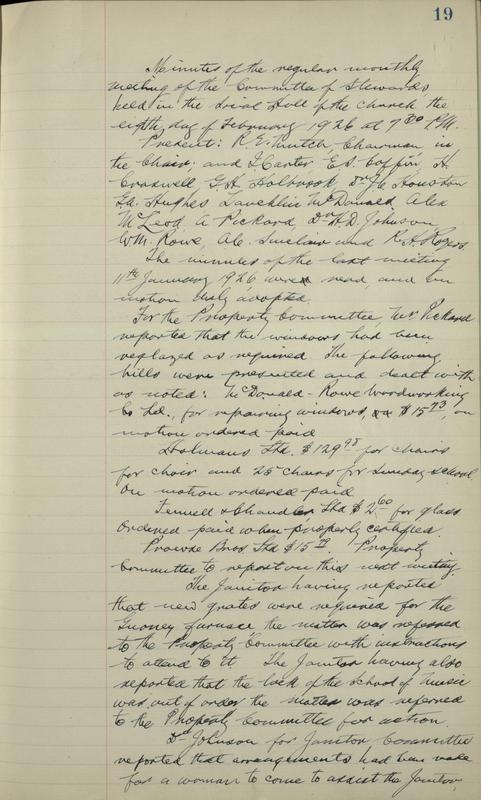 19
Minutes of the regular monthly
meeting of the Committee of Stewards
held in the Social Hall of the church the
eighth day of February 1926 at 7 30 P.M.
Present: R. E. Mutch, Chairman in
the Chair; and I Carter E. S. Coffin, H.
Croxwell G. H. Holbrook Dr J C Houston
Ed. Hughes Lauchlin McDonald, Alex
McLeod, A Pickard, Dr H. D. Johnson
Wm. Rowe, Alc. Sinclair and R. H. Rogers.
The minutes of the last meeting
11th January 1926 were read, and on
motion duly adopted.
For the Property Committee, Mr Pickard
reported that the windows had been
reglazed as required. The following
bills were presented and dealt with
as noted: McDonald-Rowe Woodworking
Co Ltd., for repairing windows, $15 73, on
motion ordered paid
Holmans Ltd. $129 98 for chairs
for choir and 25 chairs for Sunday school
On motion ordered paid
Fennell & Chandler Ltd $2 60 for glass
Ordered paid when properly certified.
Prowse Bros Ltd $15 Property
Committee to report on this next meeting.
The Janitor having reported
that new grates were required for the
Gurney furnace the matter was referred
to the Property Committee with instructions
to attend to it. The Janitor having also
reported that the lock of the school of music
was out of order the matter was referred
to the Property Committee for action.
Dr Johnson for Janitor Committee
reported that arrangements had been made
for a woman to come to assist the Janitor,